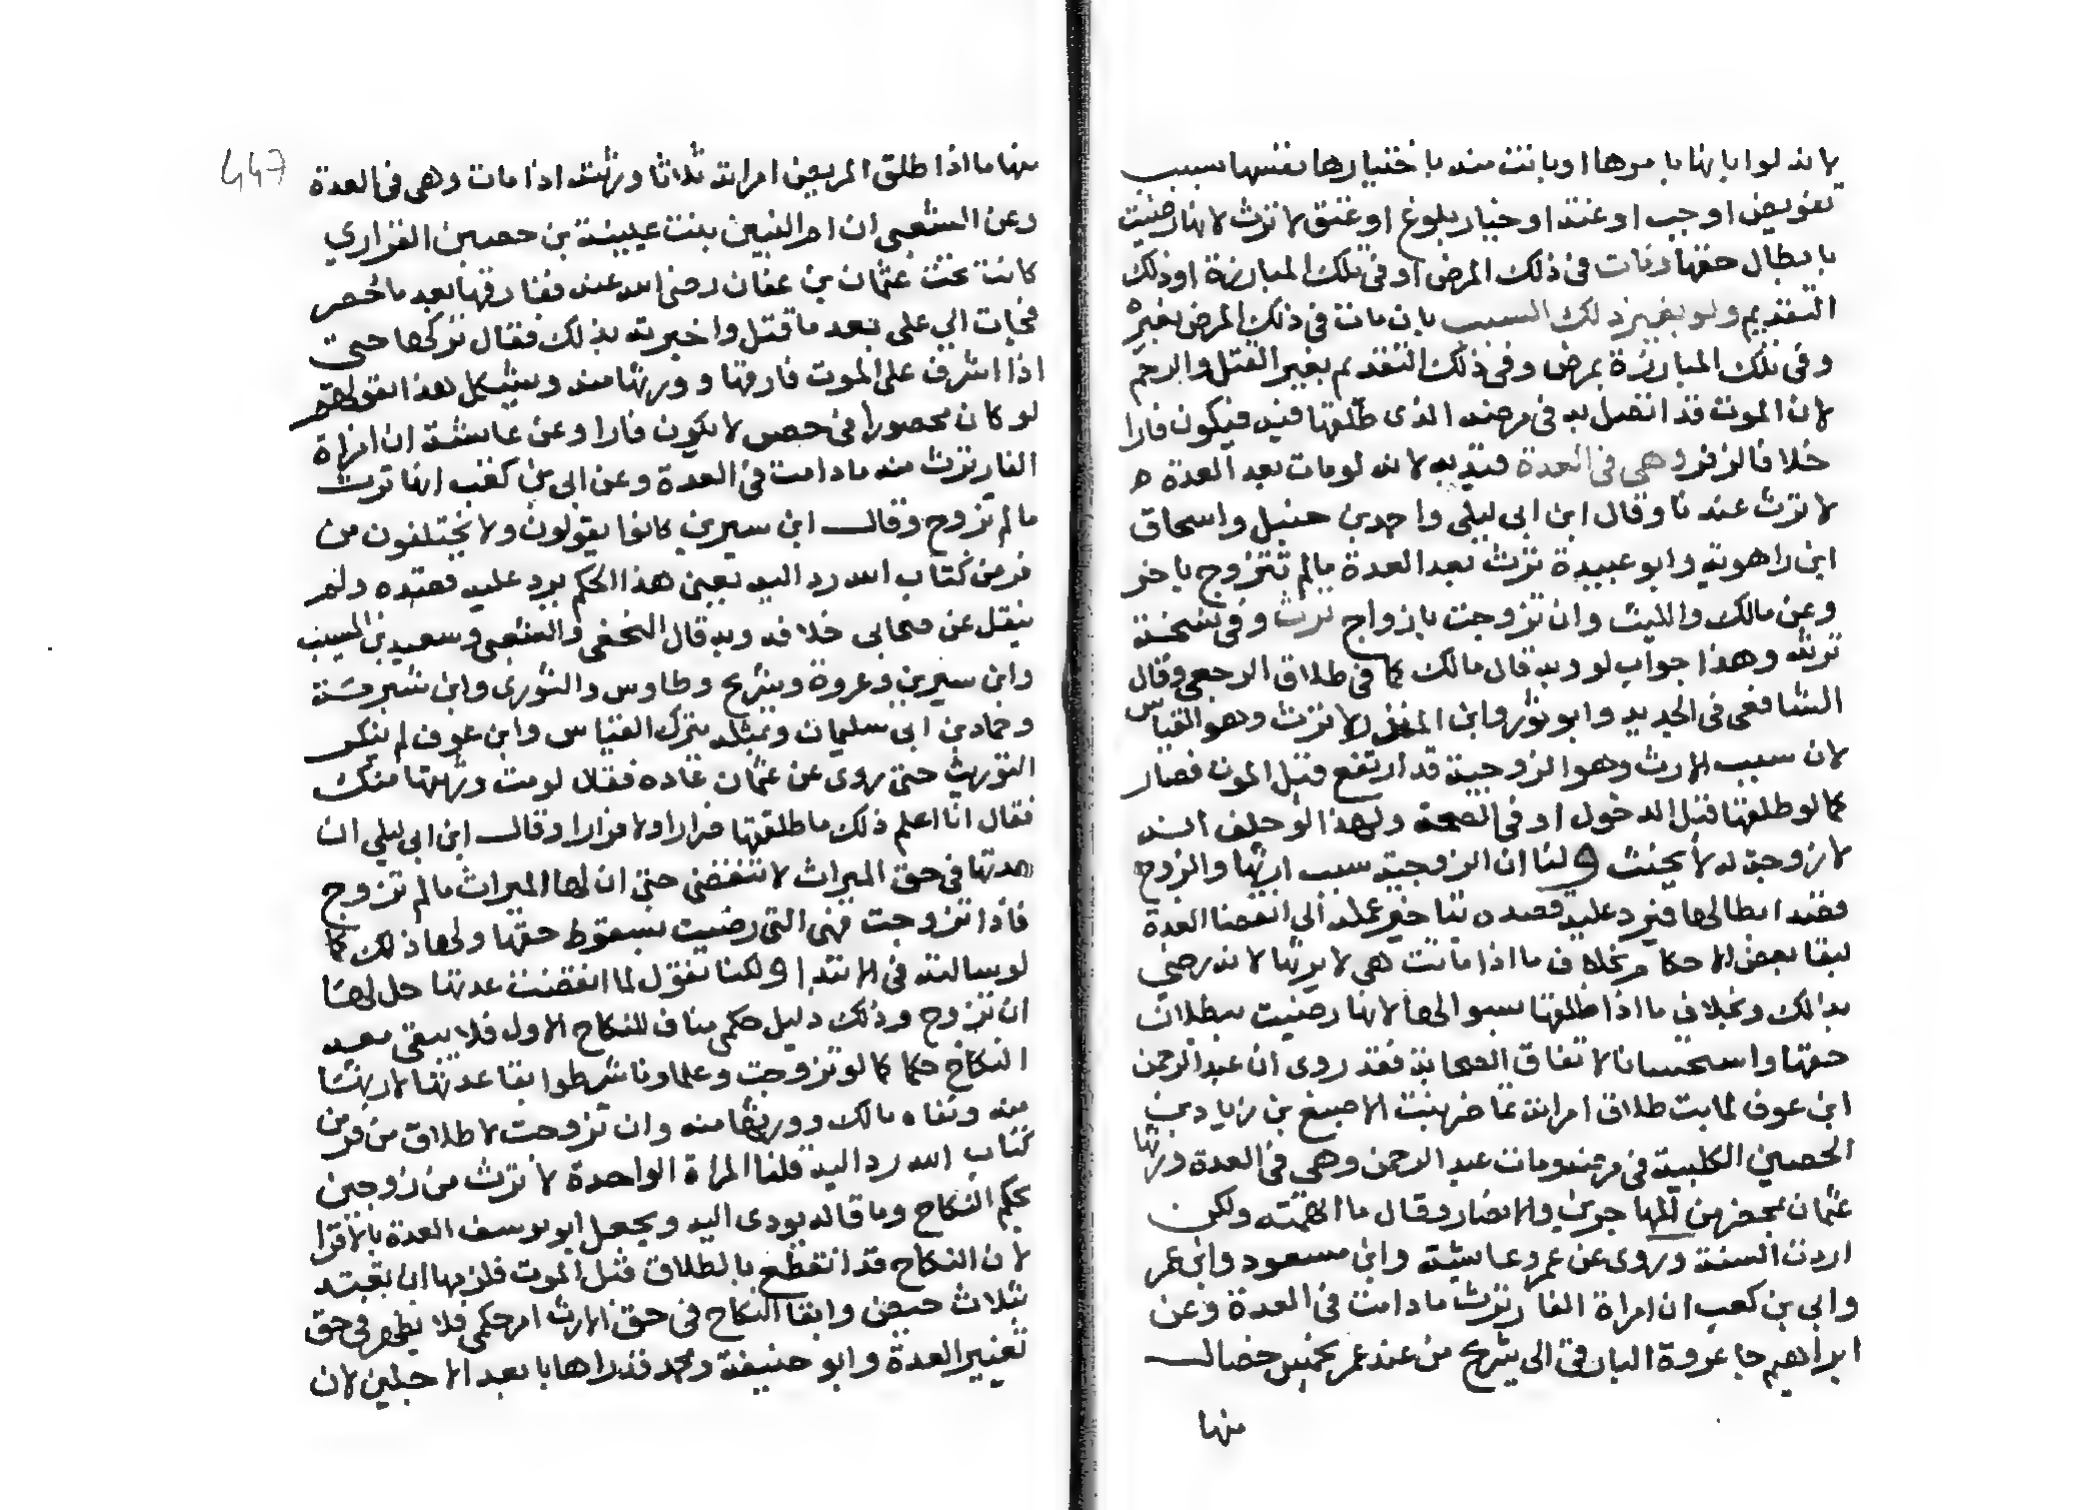 بانه لو ابانها بامرها او بانت منه باختيارها نفسها بسبب
تفويض او جب او عنة او خيار بلوغ او عتق لا ترث لانها رضيت
بابطال حقها ومات في ذلك المرض او في تلك المبارزة او ذلك
التقديم ولو بغير ذلك السبب بان مات في ذلك المرض بغيره
وفي تلك المبارزة بمرض وفي ذلك التقديم بغير القتل والرجم
لان الموت قد اتصل به في مرضه الذي طلقها فيه فيكون فارا
خلافا لزفر وهي في العدة قيد به لانه لو مات بعد العدة ه
لا ترث عندنا وقال ابن ابي ليلى واحمد بن حنبل واسحاق
ابن راهويه وابو عبيدة ترث بعد العدة مالم تتزوج باخر
وعن مالك والليث وان تزوجت بازواج ترث وفي نسخة
ترثه وهذا جواب لو وبه قال مالك كما في طلاق الرجعي وقال
الشافعي في الجديد وابو ثور وابن المنذر لا ترث وهو القياس
لان سبب الارث وهو الزوجية قد ارتفع قبل الموت فصار
كما لو طلقها قبل الدخول او في الصحة ولهذا لو حلف انه
لا زوجة له لا يحنث ولنا ان الزوجية سبب ارثها والزوج
قصد ابطالها فيرد عليه قصده بتاخير عمله الى انقضا العدة
لبقا بعض الاحكام بخلاف ما اذا ماتت هي لا يرثها لانه رضي
بذالك وبخلاف ما اذا طلقها بسوالها لانها رضيت ببطلان
حقها واستحسانا لاتفاق الصحابة فقد روى ان عبد الرحمن
ابن عوف لما بت طلاق امراته تماضر بنت الاصبغ بن زياد بن
الحصين الكلبية في مرضه ومات عبد الرحمن وهي في العدة ورثها
عثمان بمحضر من المهاجرين والانصار وقال ما اتهمته ولكن
اردت السنة وروى عن عمر وعائشة وابن مسعود وابن عمر
وابي بن كعب ان امراة الفار ترث ما دامت في العدة وعن
ابراهيم جا عروة البارقي الى شريح من عند عمر بخمس خصال
منها
447
منها ما اذا طلق المريض امراته ثلاثا ورثته اذا مات وهي في العدة
وعن الشعبي ان ام البنين بنت عيينة بن حصين الفزاري
كانت تحت عثمان بن عفان رضى الله عنه ففارقها بعد ما حصر
فجات الي على بعد ما قتل واخبرته بذلك فقال تركها حتى
اذا اشرف على الموت فارقها وورثها منه ويشكل بهذا بقولهم
لو كان محصورا في حصن لا يكون فارا وعن عائشة ان امراة
الفار ترث منه ما دامت في العدة وعن ابي بن كعب انها ترث
مالم تزوج وقال ابن سيرين كانوا يقولون ولا يختلفون من
فر من كتاب الله رد اليه يعني هذا الحكم يرد عليه قصده ولم
ينقل عن صحابي خلافه وبه قال النخعي والشعبي وسعيد بن المسيب
وابن سيرين وعروة وشريح وطاوس والثوري وابن شبرمة
وحماد بن ابي سليمان وبمثله يترك القياس وابن عوف لم ينكر
التوريث حتى روى عن عثمان عاده فقال لو مت ورثتها منك
فقال انا اعلم ذلك ما طلقتها ضرارا ولا فرارا وقال ابن ابي ليلى ان
عدتها في حق الميراث لا تنقضي حتى ان لها الميراث مالم تزوج
فاذا تزوجت فهي التي رضيت بسقوط حقها ولها ذلك كما
لو سالته في الابتدا ولكنا نقول لما انقضت عدتها حل لها
ان تزوج وذلك دليل حكمي مناف للنكاح الاول فلا يبقى معه
النكاح حكما كما لو تزوجت وعلماونا شرطوا بقا عدتها لارثها
منه ونفاه مالك وورثها منه وان تزوجت لاطلاق من فر من
كتاب الله رد اليه قلنا المراة الواحدة لا ترث من زوجين
بحكم النكاح وما قاله يودى اليه ويجعل ابو يوسف العدة بالاقرا
لان النكاح قد انقطع بالطلاق قبل الموت فلزمها ان تعتد
بثلاث حيض وابقا النكاح في حق الارث امر حكمي فلا يظهر في حق
تغيير العدة وابو حنيفة ومحمد قدراها بابعد الاجلين لان